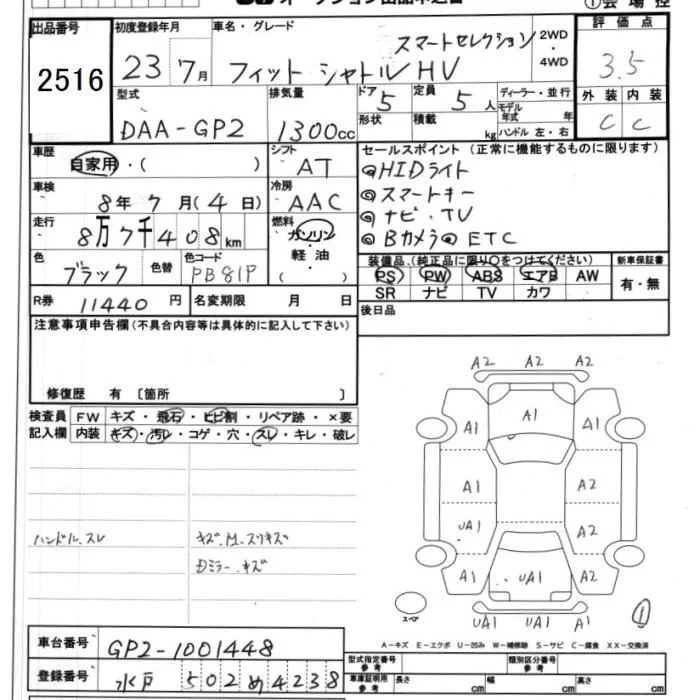 ①会場控
出品番号 初度登録年月 車名・グレード 評価点
スマートセレクション 2WD・4WD
2516 23 7月 フィット シャトル HV 3.5
型式 排気量 ドア 5 定員 5人 ディーラー・並行 外装 内装
モデル年式 年
DAA-GP2 1300cc 形状 積載 kg ハンドル 左・右 C C
車歴 シフト セールスポイント (正常に機能するものに限ります)
自家用・( ) AT ◎HIDライト
車検 冷房 ◎スマートキー
8年 7月 (4日) AAC ◎ナビ・TV
走行 燃料 ◎Bカメラ◎ETC
8万7千408km ガソリン
色 色替 色コード 軽油 装備品 (純正品に限り○をつけてください) 新車保証書
ブラック PB81P ( ) PS PW ABS エアB AW 有・無
R券 11440円 名変期限 月 日 SR ナビ TV カワ
注意事項申告欄(不具合内容等は具体的に記入して下さい) 後日品
修復歴 有 〔箇所 〕
検査員 FW キズ・飛石・ヒビ割・リペア跡・×要
記入欄 内装 キズ・汚レ・コゲ・穴・スレ・キレ・破レ
A2 A2 A2
A1 A1 A1
A1 A2
UA1 A2
A1 UA1 A2
UA1 UA1 A1
スペア
①
ハンドル、スレ キズ、M、スリキズ
Dミラー、キズ
A-キズ E-エクボ U-凹み W-補修跡 S-サビ C-腐食 XX-交換済
車台番号 GP2-1001448
型式指定番号 参考 類別区分番号 参考
登録番号 水戸 502 め 4238
車庫証明用 参考 長さ cm 幅 cm 高さ cm